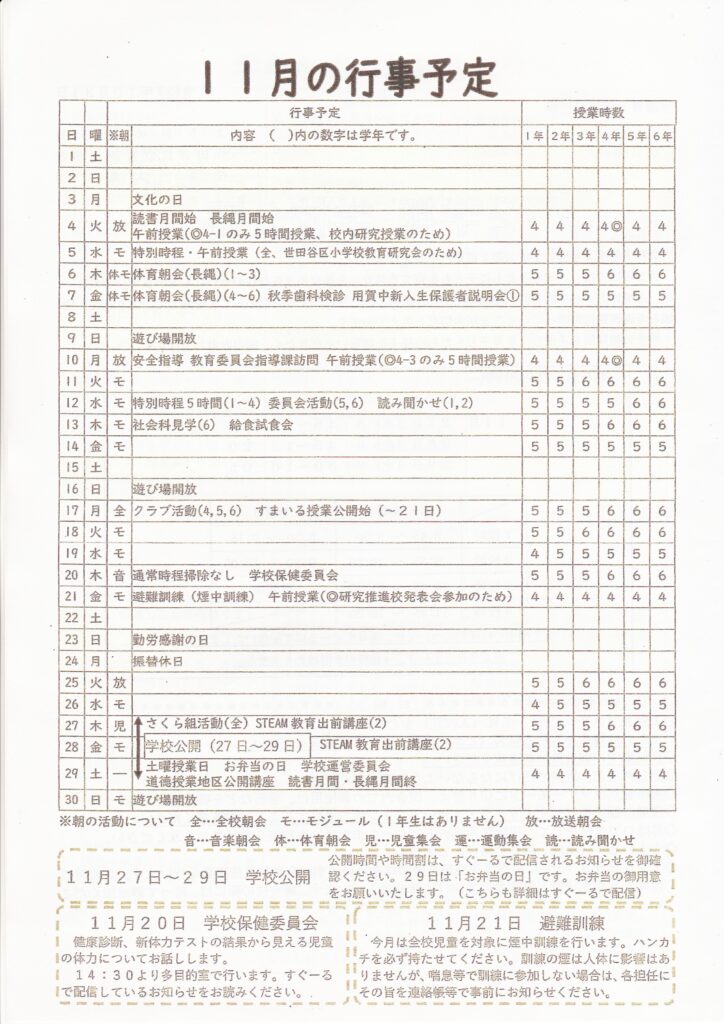 １１月の行事予定
行事予定 授業時数
日 曜 ※朝 内容　(　)内の数字は学年です。 1年 2年 3年 4年 5年 6年
1 土
2 日
3 月 文化の日
4 火 放 読書月間始　長縄月間始
午前授業(◎4-1のみ５時間授業、校内研究授業のため) 4 4 4 4◎ 4 4
5 水 モ 特別時程・午前授業（全、世田谷区小学校教育研究会のため） 4 4 4 4 4 4
6 木 体モ 体育朝会(長縄)(1～3) 5 5 5 6 6 6
7 金 体モ 体育朝会(長縄)(4～6) 秋季歯科検診 用賀中新入生保護者説明会① 5 5 5 5 5 5
8 土
9 日 遊び場開放
10 月 放 安全指導 教育委員会指導課訪問 午前授業(◎4-3のみ５時間授業) 4 4 4 4◎ 4 4
11 火 モ 5 5 6 6 6 6
12 水 モ 特別時程５時間(1～4) 委員会活動(5,6)　読み聞かせ(1,2) 5 5 5 5 6 6
13 木 モ 社会科見学(6)　給食試食会 5 5 5 6 6 6
14 金 モ 5 5 5 5 5 5
15 土
16 日 遊び場開放
17 月 全 クラブ活動(4,5,6)　すまいる授業公開始（～２１日） 5 5 5 6 6 6
18 火 モ 5 5 6 6 6 6
19 水 モ 4 5 5 5 5 5
20 木 音 通常時程掃除なし　学校保健委員会 5 5 5 6 6 6
21 金 モ 避難訓練（煙中訓練）　午前授業(◎研究推進校発表会参加のため) 4 4 4 4 4 4
22 土
23 日 勤労感謝の日
24 月 振替休日
25 火 放 5 5 6 6 6 6
26 水 モ 4 5 5 5 5 5
27 木 児 さくら組活動(全) STEAM教育出前講座(2) 5 5 5 6 6 6
28 金 モ 学校公開（27日～29日） STEAM教育出前講座(2) 5 5 5 5 5 5
29 土 ― 土曜授業日　お弁当の日　学校運営委員会
道徳授業地区公開講座　読書月間・長縄月間終 4 4 4 4 4 4
30 日 モ 遊び場開放
※朝の活動について　全…全校朝会　モ…モジュール（１年生はありません）　放…放送朝会
音…音楽朝会　体…体育朝会　児…児童集会　運…運動集会　読…読み聞かせ
１１月２７日～２９日　学校公開
公開時間や時間割は、すぐーるで配信されるお知らせを御確
認ください。２９日は「お弁当の日」です。お弁当の御用意
をお願いいたします。（こちらも詳細はすぐーるで配信）
１１月２０日　学校保健委員会
健康診断、新体力テストの結果から見える児童
の体力についてお話しします。
１４：３０より多目的室で行います。すぐーる
で配信しているお知らせをお読みください。
１１月２１日　避難訓練
今月は全校児童を対象に煙中訓練を行います。ハンカ
チを必ず持たせてください。訓練の煙は人体に影響はあ
りませんが、喘息等で訓練に参加しない場合は、各担任に
その旨を連絡帳等で事前にお知らせください。